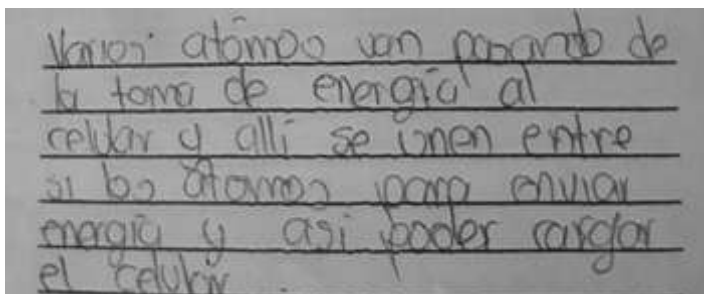 Varios atómos van pasando de
la toma de energía al
celular y allí se unen entre
si los átomos para enviar
energía y asi poder cargar
el celular.